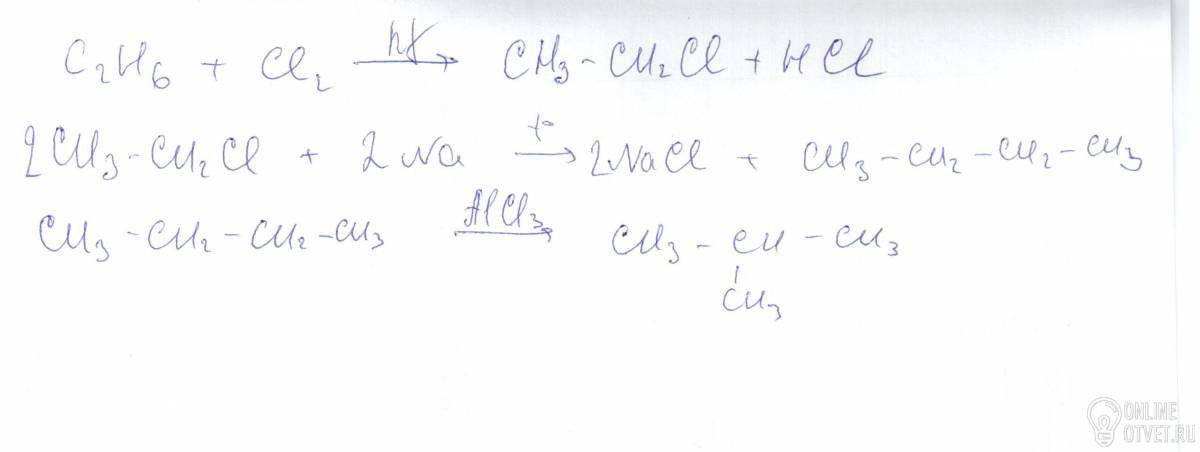 C₂H₆ + Cl₂ —hγ→ CH₃-CH₂Cl + HCl
2CH₃-CH₂Cl + 2Na —t°→ 2NaCl + CH₃-CH₂-CH₂-CH₃
CH₃-CH₂-CH₂-CH₃ —AlCl₃→ CH₃-CH-CH₃
CH₃
ONLINE
OTVET.RU